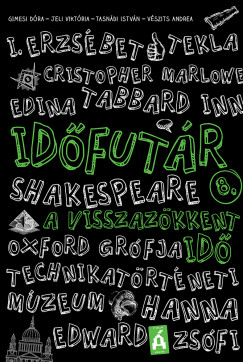 GIMESI DÓRA – JELI VIKTÓRIA – TASNÁDI ISTVÁN – VÉSZITS ANDREA
I. ERZSÉBET TEKLA
CRISTOPHER MARLOWE
EDINA TABBARD INN
IDŐFUTÁR
SHAKESPEARE 8.
A VISSZAZÖKKENT
OXFORD GRÓFJA IDŐ
TECHNIKATÖRTÉNETI
MÚZEUM HANNA
EDWARD Á ZSÓFI